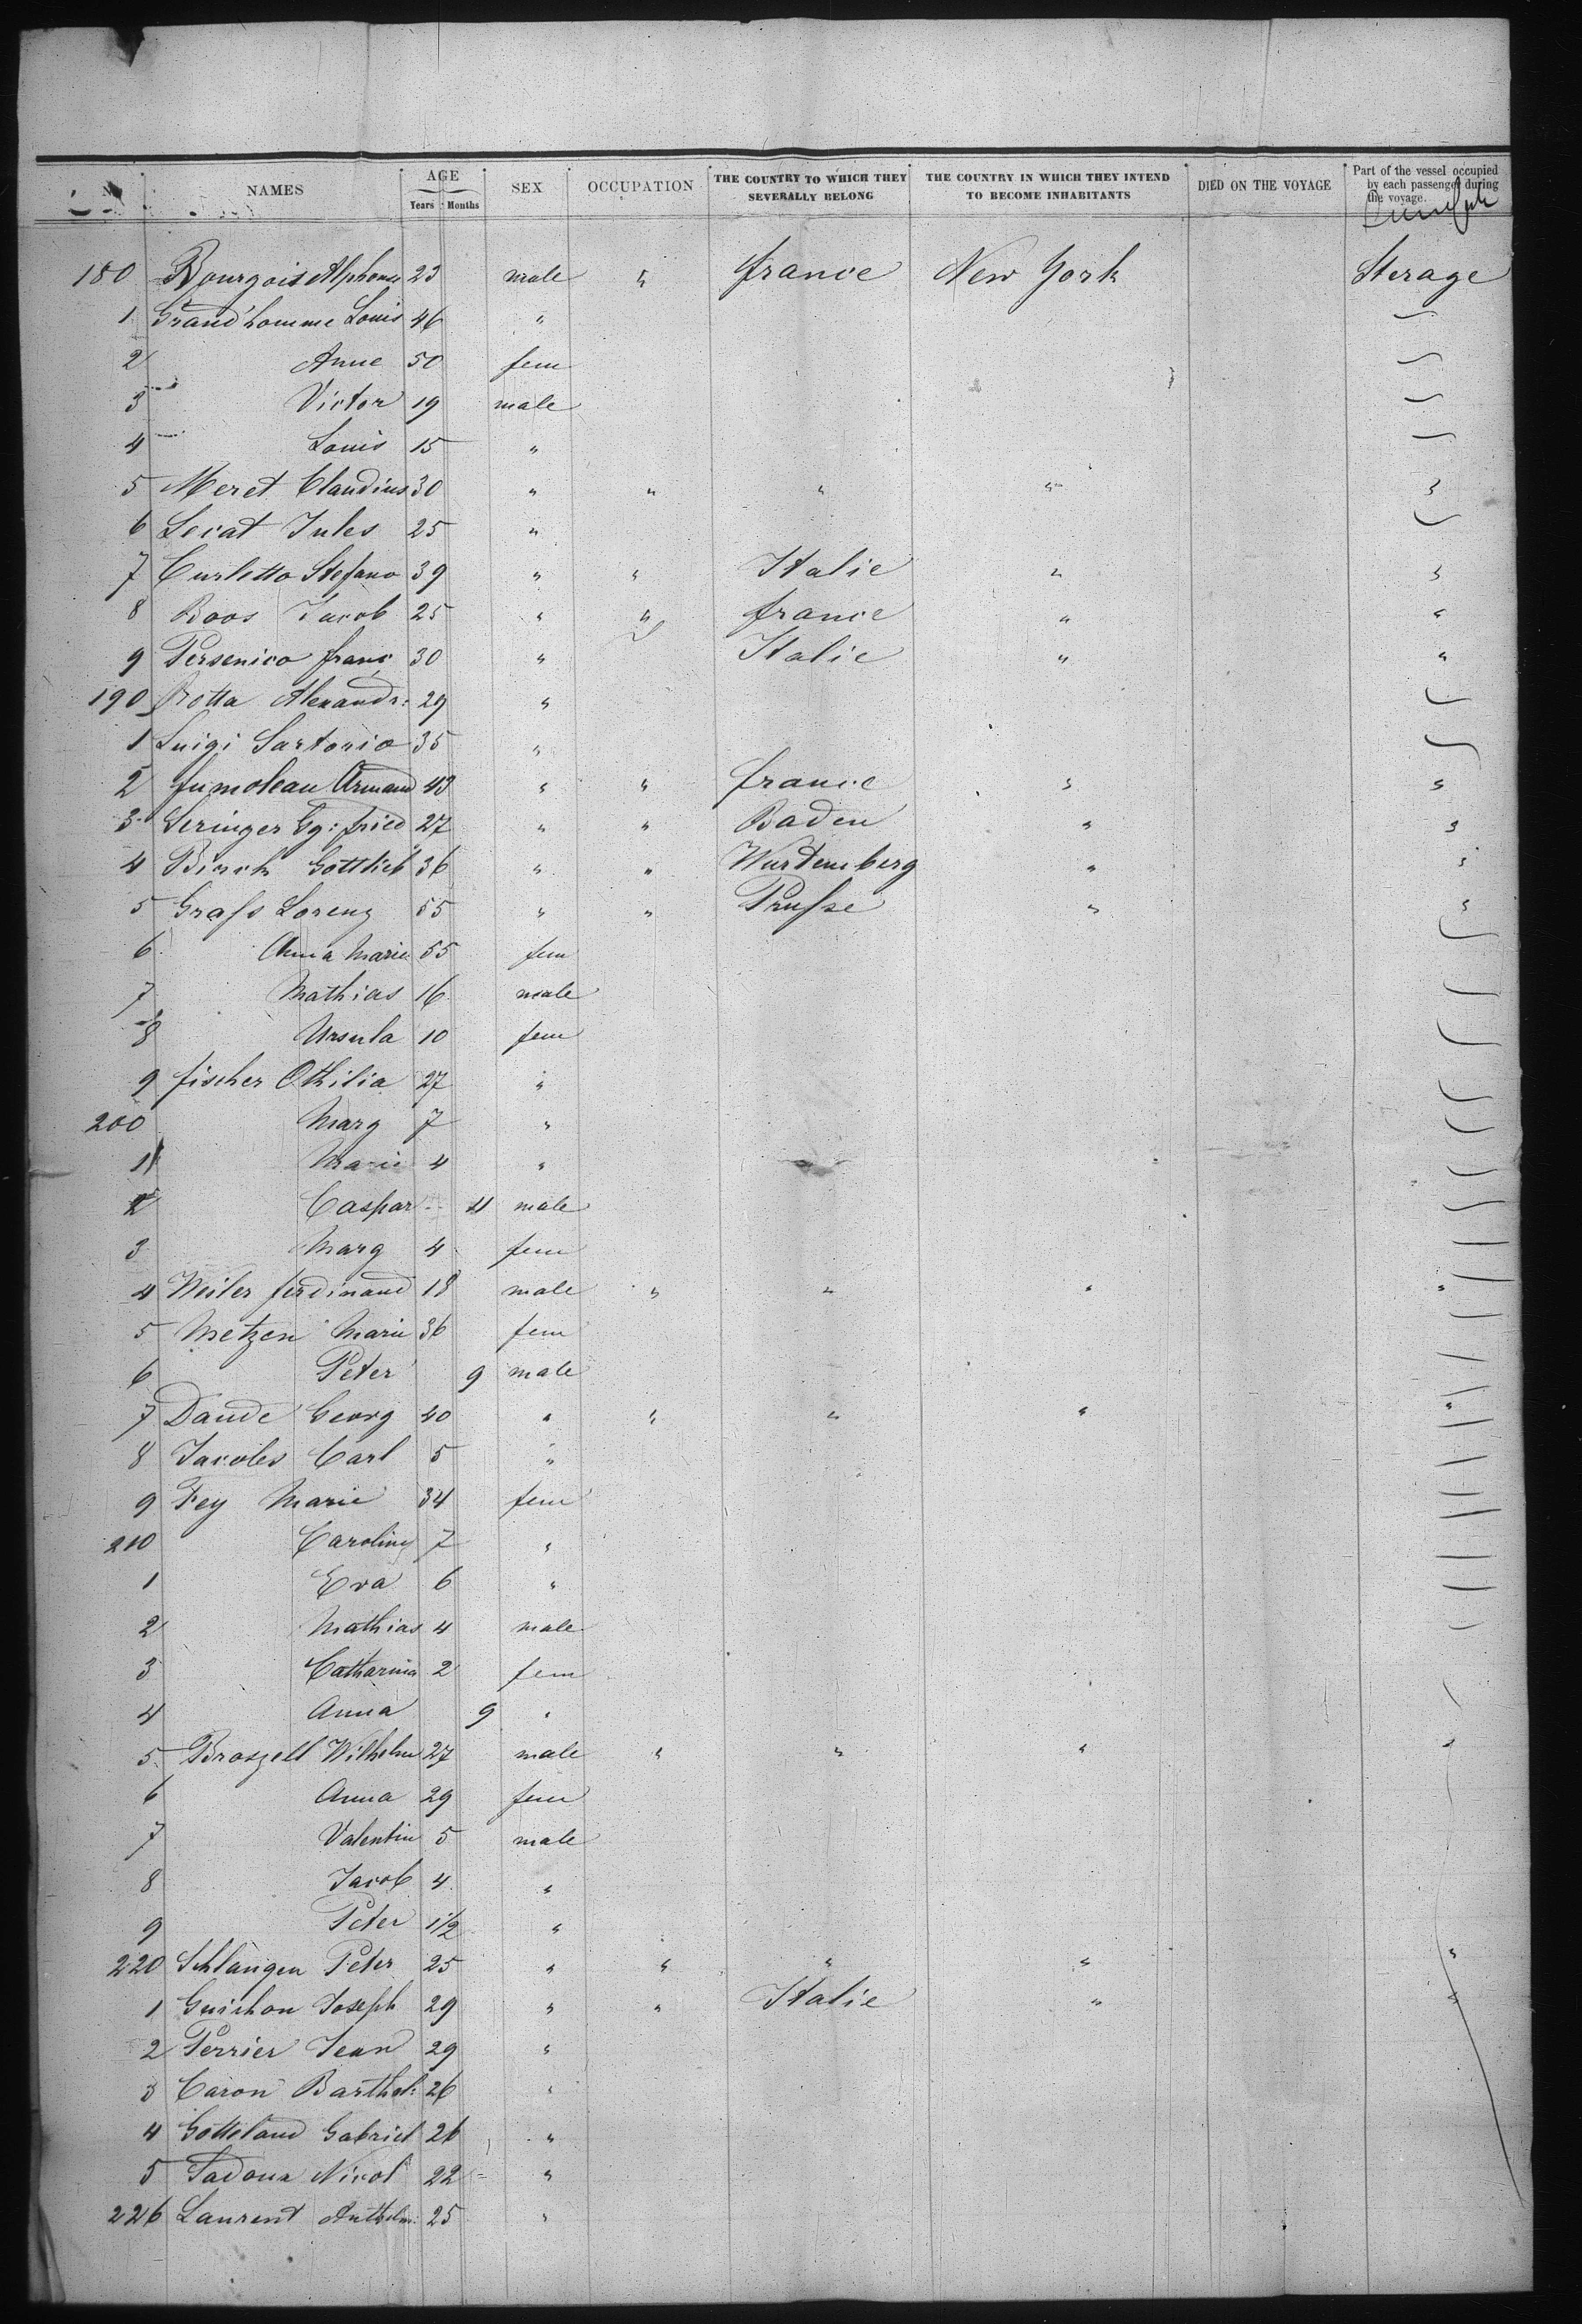 NAMES AGE SEX OCCUPATION THE COUNTRY TO WHICH THEY SEVERALLY BELONG THE COUNTRY IN WHICH THEY INTEND TO BECOME INHABITANTS DIED ON THE VOYAGE Part of the vessel occupied by each passenger during the voyage.
Years Months
180 Bourgois Alphonse 23 male " france New York Sterage
1 Grand'homme Louis 46 "
2 Anne 50 fem
3 Victor 19 male
4 Louis 15 "
5 Meret Claudius 30 " " " " "
6 Lecat Jules 25 "
7 Curletto Stefano 39 " " Italie " "
8 Boos Jacob 25 " " france " "
9 Persenico franc 30 " Italie " "
190 Rotta Alexandr: 29 "
1 Luigi Sartorio 35 "
2 fumoleau Armand 43 " " france " "
3 Geringer Gg: fried 27 " " Baden " "
4 Birch Gottlieb 36 " " Wurtemberg " "
5 Grafs Lorenz 55 " " Prufse " "
6 Anna Marie 55 fem
7 Mathias 16 male
8 Ursula 10 fem
9 fischer Othilia 27 "
200 Marg 7 "
1 Marie 4 "
2 Caspar 4 male
3 Marg 4 fem
4 Weiler ferdinand 18 male " " " "
5 Metzen Marie 36 fem
6 Peter 9 male
7 Daude Georg 40 " " " " "
8 Jacoles Carl 5 "
9 Fey Marie 34 fem
210 Caroline 7 "
1 Eva 6 "
2 Mathias 4 male
3 Catharina 2 fem
4 Anna 9 "
5 Broszell Wilhelm 27 male " " " "
6 Anna 29 fem
7 Valentin 5 male
8 Jacob 4 "
9 Peter 1 1/2 "
220 Schlangen Peter 25 " " " " "
1 Guichon Joseph 29 " " Italie " "
2 Perrier Jean 29 "
3 Caron Barthel: 26 "
4 Gotteland Gabriel 26 "
5 Tadoux Nicol 22 "
226 Laurent Anthelm: 25 "